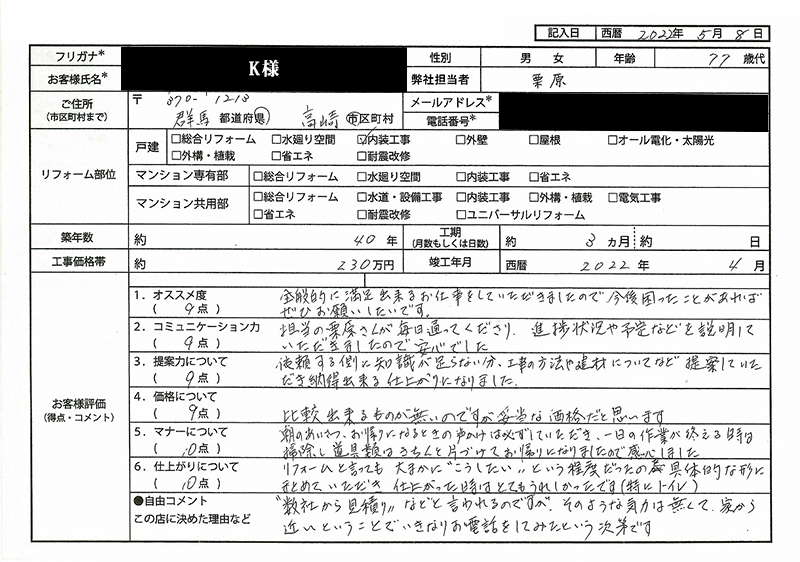 記入日 西暦 2022年 5月 8日
フリガナ* K様 性別 男 女 年齢 77 歳代
お客様氏名* 弊社担当者 栗原
ご住所 〒370-1213 メールアドレス*
(市区町村まで) 群馬 都道府県 高崎 市区町村 電話番号*
リフォーム部位 戸建 □総合リフォーム □水廻り空間 ☑内装工事 □外壁 □屋根 □オール電化・太陽光
□外構・植栽 □省エネ □耐震改修
マンション専有部 □総合リフォーム □水廻り空間 □内装工事 □省エネ
マンション共用部 □総合リフォーム □水道・設備工事 □内装工事 □外構・植栽 □電気工事
□省エネ □耐震改修 □ユニバーサルリフォーム
築年数 約 40 年 工期 (月数もしくは日数) 約 3 ヵ月 約 日
工事価格帯 約 230 万円 竣工年月 西暦 2022 年 4 月
お客様評価
(得点・コメント)
1．オススメ度 全般的に満足出来るお仕事をしていただきましたので今後困ったことがあれば
( 9点 ) ぜひお願いしたいです。
2．コミュニケーション力 担当の栗原さんが毎日通ってくださり、進捗状況や予定などを説明して
( 9点 ) いただきましたので安心でした
3．提案力について 依頼する側に知識が足らない分、工事の方法や建材についてなど提案していた
( 9点 ) だき納得出来る仕上がりになりました.
4．価格について
( 9点 ) 比較出来るものが無いのですが妥当な価格だと思います
5．マナーについて 朝のあいさつ、お帰りになるときの声かけは必ずしていただき、一日の作業が終える時は
( 10点 ) 掃除し道具類はきちんと片づけてお帰りになりましたので感心しました
6．仕上がりについて リフォームと言っても大まかに"こうしたい"という程度だったの 具体的な形に
( 10点 ) まとめていただき 仕上がった時はとてもうれしかったです(特にトイレ)
●自由コメント "数社から見積り"などと言われるのですが、そのような気力は無くて、家から
この店に決めた理由など 近いということでいきなりお電話をしてみたという次第です